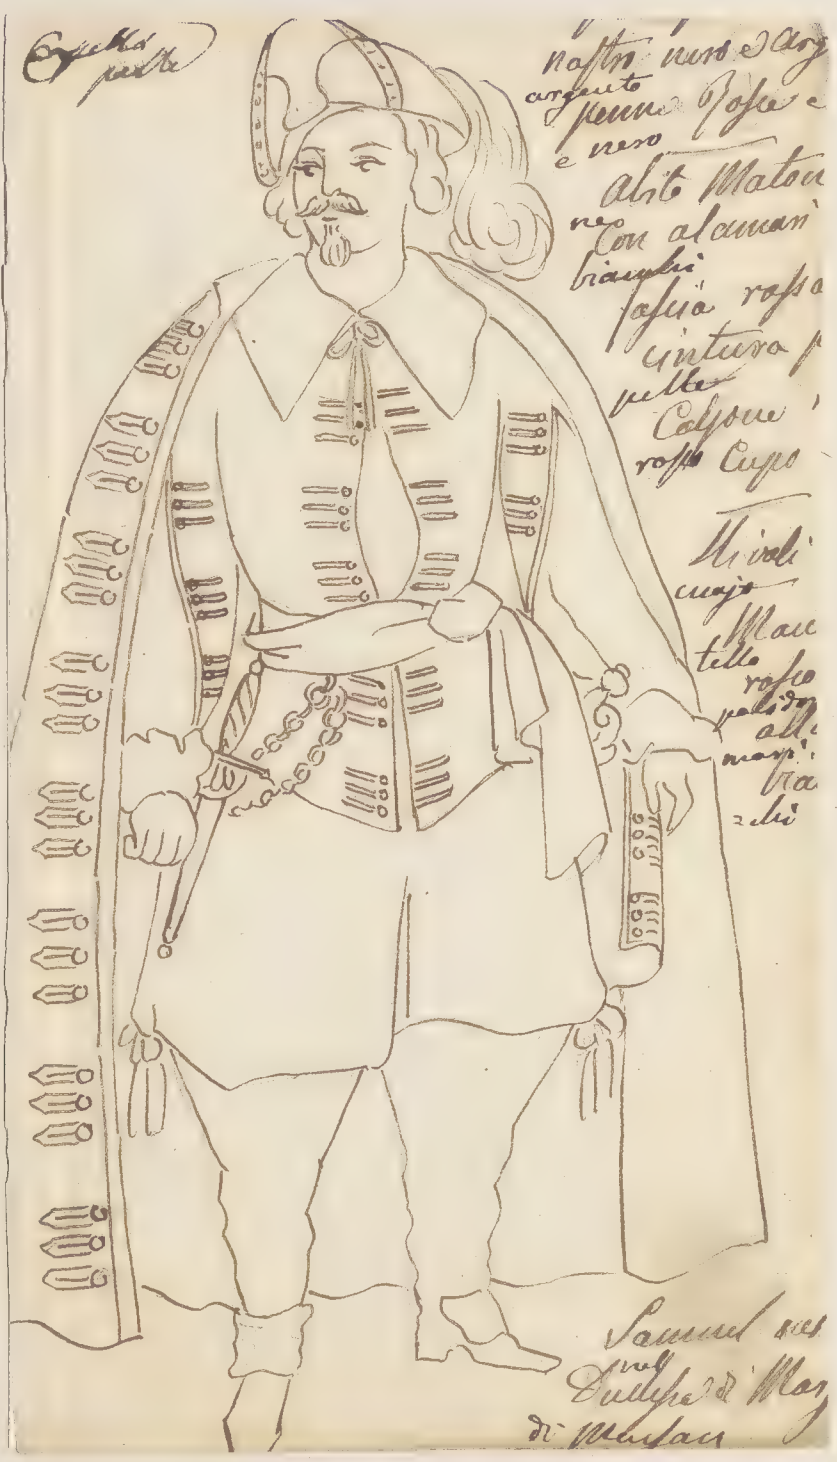 Cappello
pelle
nastro nero e arg
argento
penne Rosse e
e nero
abito Maron
ne
Con alamari
bianchi
fascia rossa
cintura p
pelle
Calzone
rosso Cupo
Stivali
cuojo
Man
tello
rosso
pallido
alla
mari
bia
nchi
Samuel
nell
di Mar
di